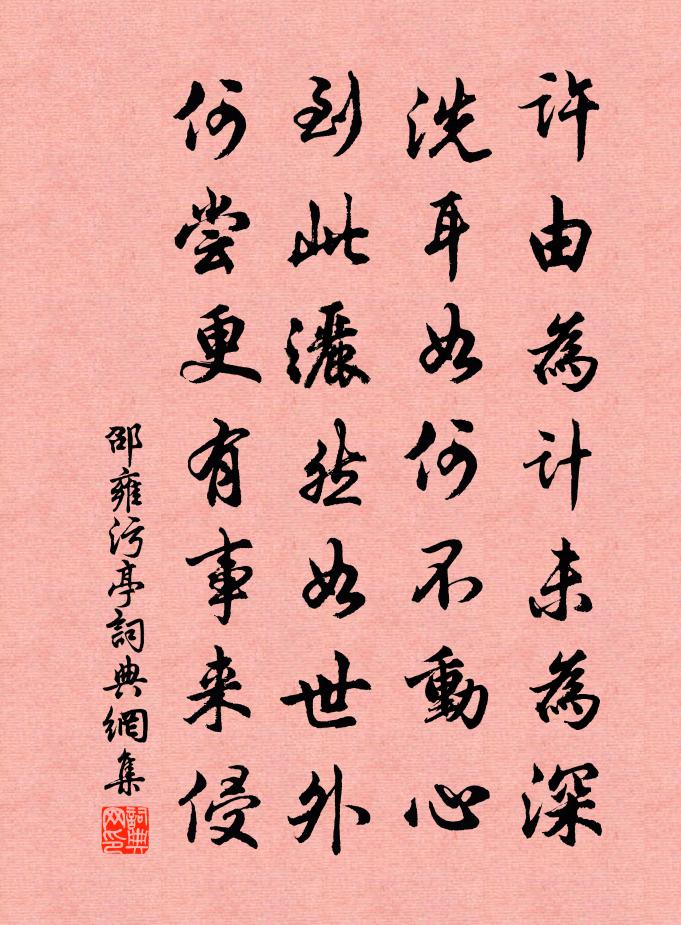 許由為計未為深
洗耳如何不動心
到此灑然如世外
何嘗更有事来侵
邵雍污亭詞典網集
詞典网印